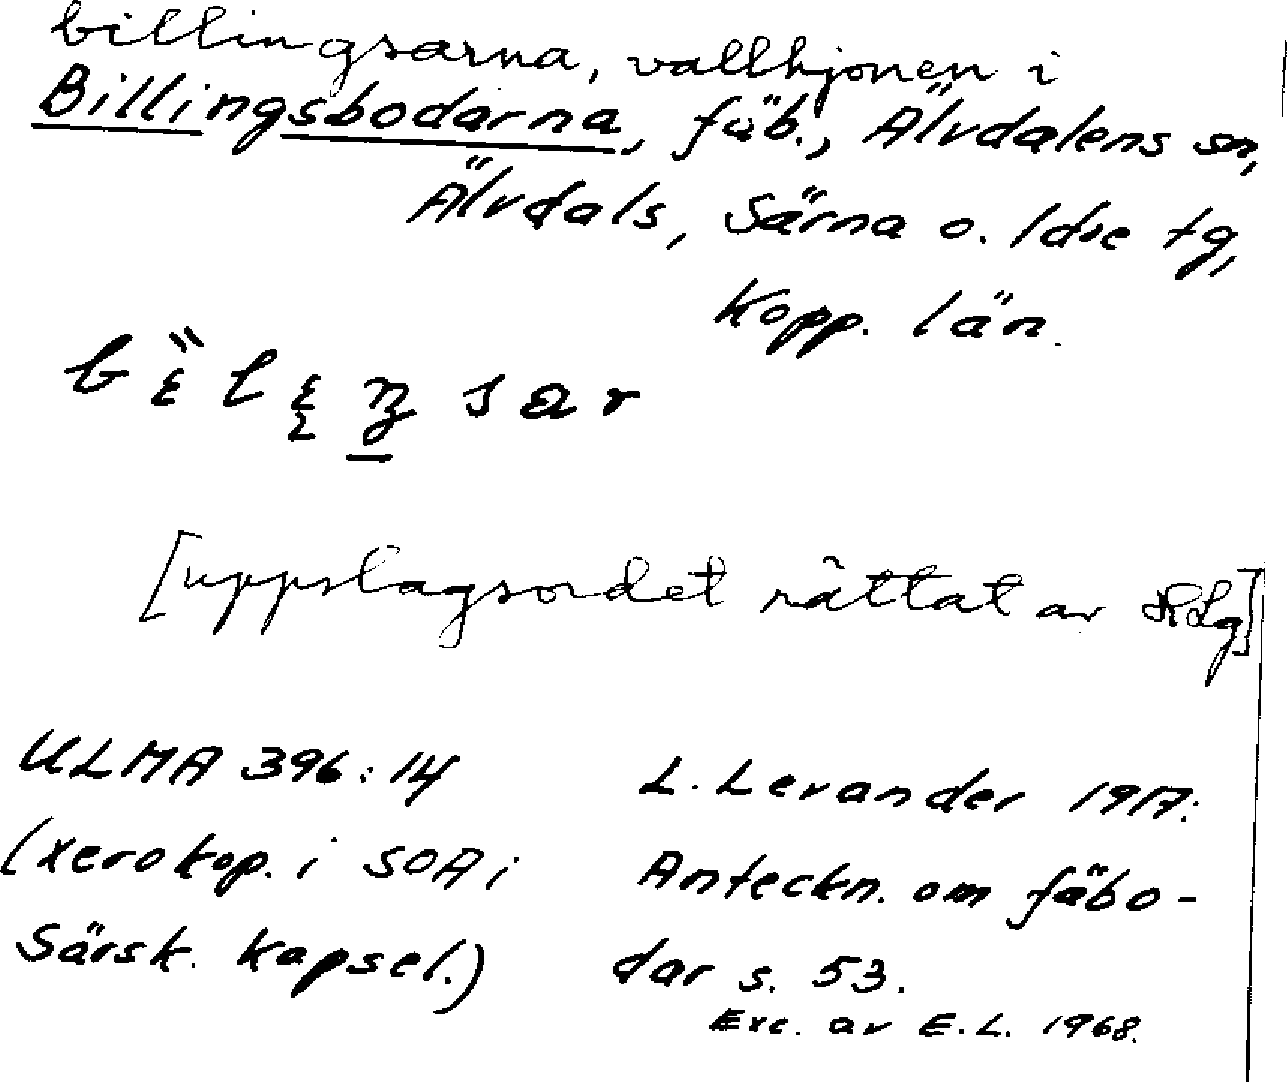 billingsarna, vallhjonen i
Billingsbodarna, fäb., Älvdalens sn,
Älvdals, Särna o. Idre tg,
Kopp. län.
[uppslagsordet rättat av RLg]
ULMA 396:14
(xerokop. i SOA i
Särsk. kapsel.)
L. Levander 1917:
Anteckn. om fäbo-
dar s. 53.
Exc. av E.L. 1968.